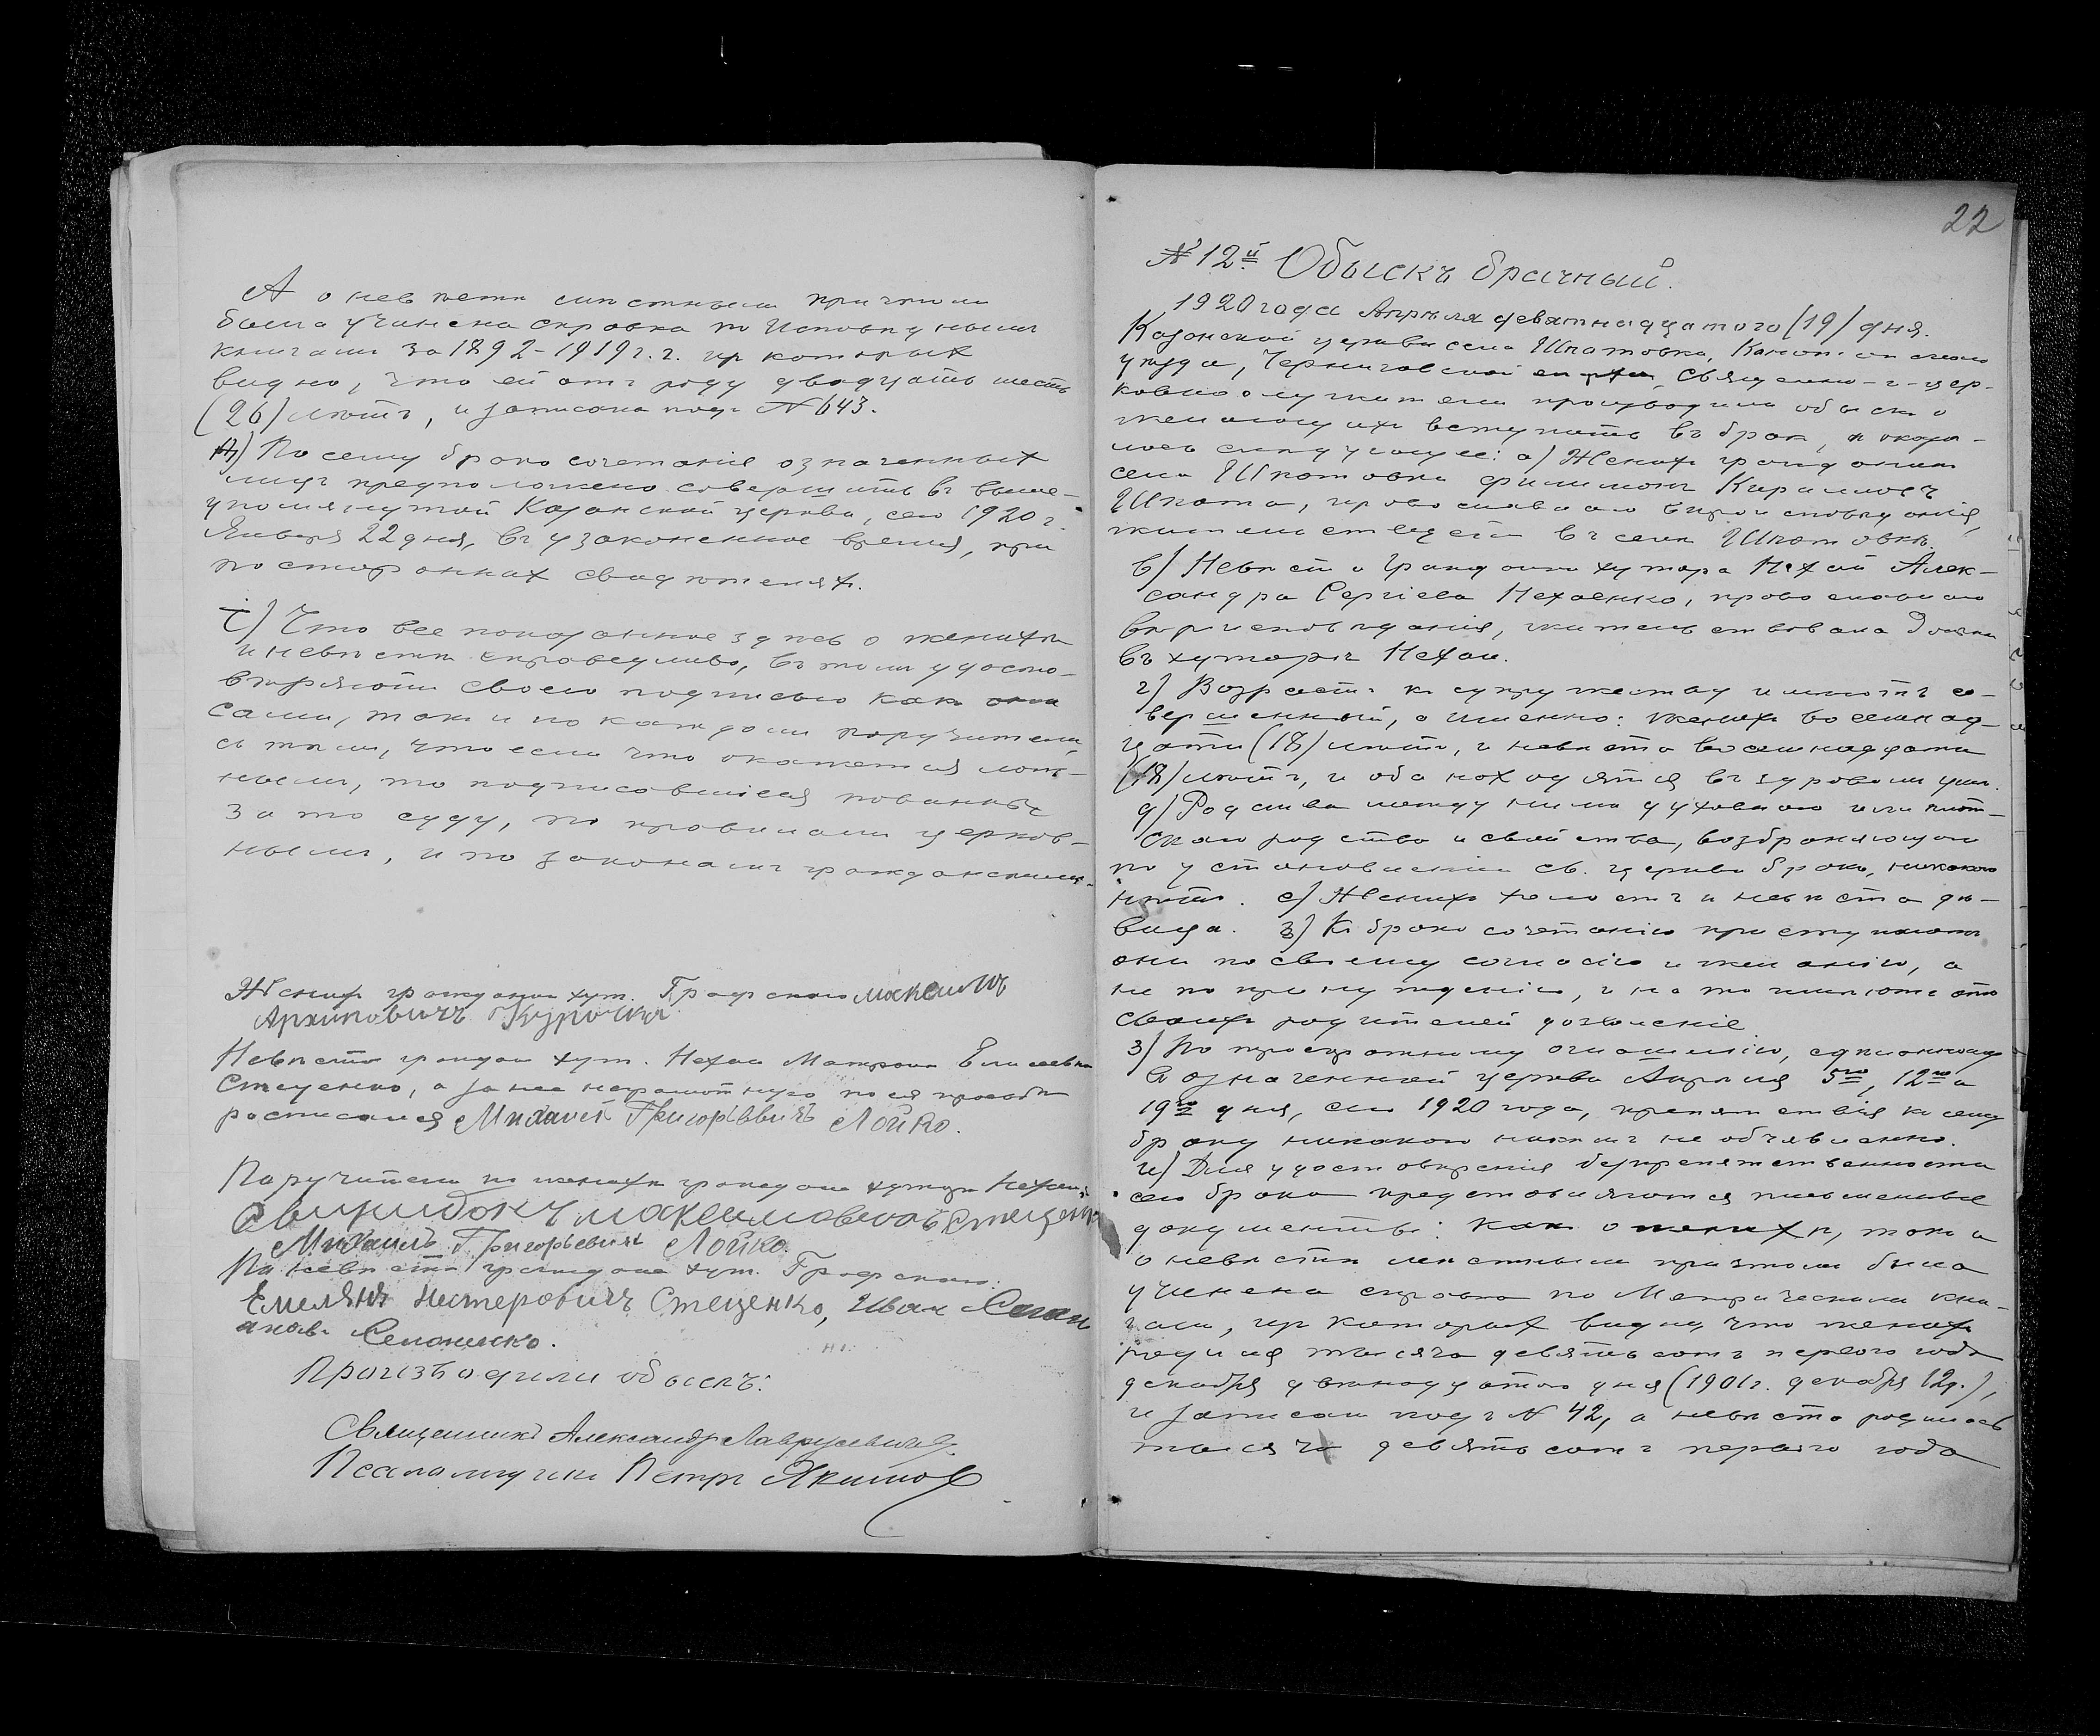 А о невѣстѣ мѣстнымъ причтомъ
была учинена справка по Исповѣднымъ
книгамъ за 1892-1919 г.г. изъ которыхъ
видно, что ей отъ роду двадцать шесть
(26) лѣтъ, и записана подъ № 643.
По сему бракосочетаніе означенныхъ
лицъ предположено совершить въ выше-
упомянутой Казанской церкви, сего 1920 г.
Января 22 дня, въ узаконенное время, при
постороннихъ свидѣтеляхъ.
і) Что все показанное здѣсь о женихѣ
и невѣстѣ справедливо, въ томъ удосто-
вѣряютъ своею подписью какъ они
сами, такъ и по каждомъ поручители,
съ тѣмъ, что если что окажется лож-
нымъ, то подписавшіеся повинны
за то суду, по правиламъ церков-
нымъ, и по законамъ гражданскимъ.
Женихъ гражданинъ хут. Графскаго Максимъ
Архиповичъ Курочка
Невѣста граждан. хут. Нехаи Матрона Елисеевна
Стеценко, а за нее неграмотную по ея просьбѣ
росписался Михаилъ Григорьевичъ Лойко.
Поручители по женихѣ граждане хутора Нехаи:
Свиридонъ Максимовичъ Стеценко
Михаилъ Григорьевичъ Лойко.
По невѣстѣ граждане хут. Графскаго:
Емельянъ Нестеровичъ Стеценко, Иван
Семоненко.
Производили обыскъ:
Священникъ Александръ Лаврусевичъ
Псаломщикъ Петръ Якимов
22
№ 12й Обыскъ брачный.
1920 года Апрѣля девятнадцатого (19) дня.
Казанской церкви села Шпатовки, Конотопскаго
уѣзда, Черниговской епархіи, Священно-и-цер-
ковнослужители производили обыскъ о
желающихъ вступить въ бракъ, и оказа-
лось слѣдующее: а) Женихъ гражданинъ
села Шпатовки Филимонъ Кирилловъ
Шпота, православнаго вѣроисповѣданія,
жительствуетъ въ селѣ Шпатовкѣ.
б) Невѣста Гражданка хутора Нехай Алек-
сандра Сергіева Нехаенко, православнаго
вѣроисповѣданія, жительствовала донынѣ
въ хуторѣ Нехаи.
г) Возрастъ къ супружеству имѣютъ со-
вершенный, а именно: женихъ восемнад-
цати (18) лѣтъ, и невѣста восемнадцати
(18) лѣтъ, и оба находятся въ здравомъ умѣ.
д) Родства между ними духовнаго или плот-
скаго родства и свойства, возбраняющаго
по установленію св. церкви бракъ, никакого
нѣтъ. е) Женихъ холостъ и невѣста дѣ-
вица. з) Къ бракосочетанію приступаютъ
они по своему согласію и желанію, а
не по принужденію, и на то имѣютъ отъ
своихъ родителей дозволеніе.
з) По троекратному оглашенію, сдѣланному
въ означенной церкви Апрѣля 5го, 12го и
19го дня, сего 1920 года, препятствія къ сему
браку никакого никѣмъ не объявленно.
и) Для удостовѣренія безпрепятственности
сего брака представляются письменные
документы: какъ о женихѣ, такъ и
о невѣстѣ мѣстнымъ причтомъ была
учинена справка по Метрическимъ кни-
гамъ, изъ которыхъ видно, что женихъ
родился тысяча девятьсотъ перваго года
декабря двенадцатого дня (1901 г. декабря 12 д.),
и записан подъ № 42, а невѣста родилась
тысяча девятьсотъ перваго года